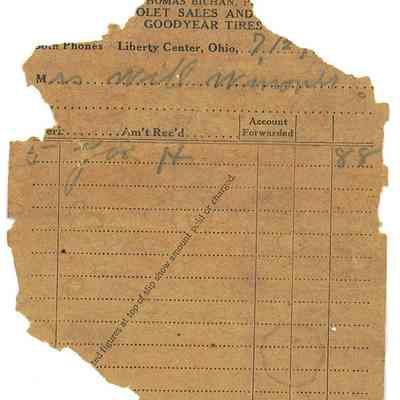 THOMAS BICHAN, P
OLET SALES AND
GOODYEAR TIRES
Both Phones Liberty Center, Ohio, 7/12
Mrs Will
erk Am't Rec'd Account Forwarded
5 88
ted figures at top of slip show amount paid or charged.